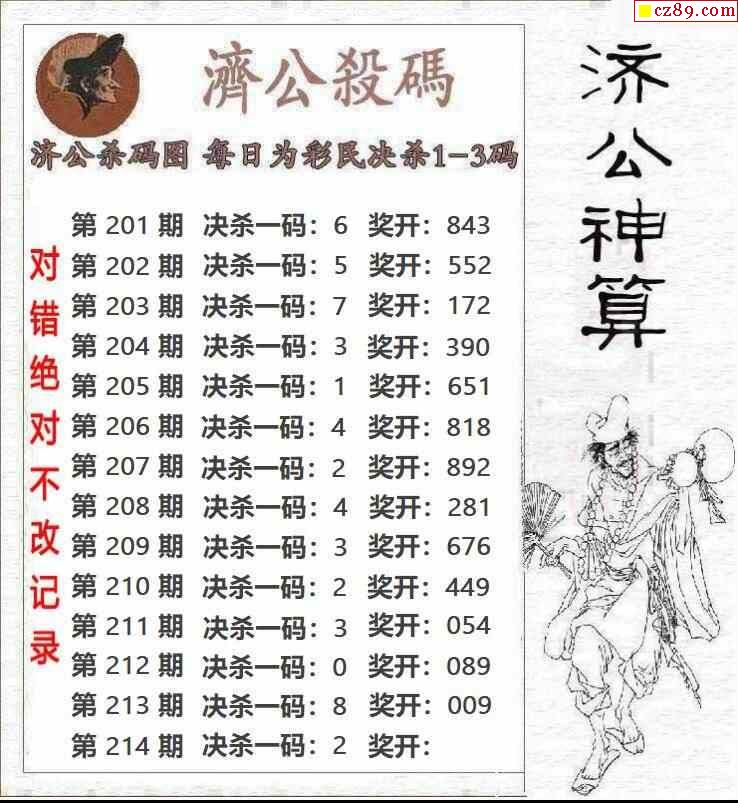 cz89.com
濟公殺碼
济公杀码图 每日为彩民决杀1-3码
第 201 期 决杀一码：6 奖开：843
第 202 期 决杀一码：5 奖开：552
第 203 期 决杀一码：7 奖开：172
第 204 期 决杀一码：3 奖开：390
第 205 期 决杀一码：1 奖开：651
第 206 期 决杀一码：4 奖开：818
第 207 期 决杀一码：2 奖开：892
第 208 期 决杀一码：4 奖开：281
第 209 期 决杀一码：3 奖开：676
第 210 期 决杀一码：2 奖开：449
第 211 期 决杀一码：3 奖开：054
第 212 期 决杀一码：0 奖开：089
第 213 期 决杀一码：8 奖开：009
第 214 期 决杀一码：2 奖开：
对错绝对不改记录
济公神算